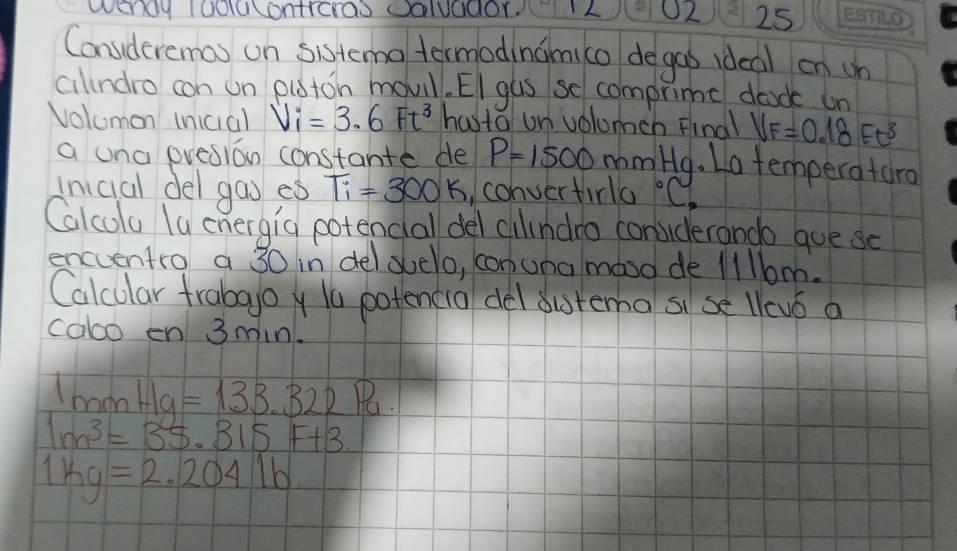 Wendy Contreras Salvador. 12 02 25 ESTILO
Consideremos un sistema termodinámico de gas ideal en un
cilindro con un pistón movil. El gas se comprime desde un
Volumen inicial Vi = 3.6 Ft³ hasta un volumen Final VF = 0.18 Ft³
a una presión constante de P = 1500 mmHg. La temperatura
inicial del gas es Ti = 300K, convertirla °C.
Calcula la energía potencial del cilindro considerando que se
encuentra a 30 in del suelo, con una masa de 11 lbm.
Calcular trabajo y la potencia del sistema si se llevó a
cabo en 3 min.
1 mm Hg = 133.322 Pa.
1m³ = 35.315 Ft3.
1kg = 2.204 lb.